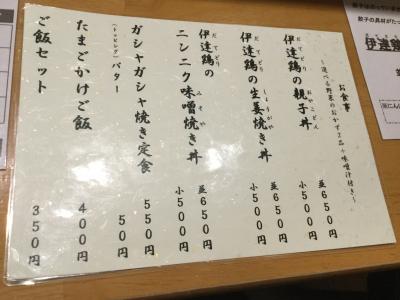 お食事
～選べる野菜のおかず2品＋味噌汁付き～
伊達鶏の親子丼
だてどり
おやこどん
並650円
小500円
伊達鶏の生姜焼き丼
だてどり
しょうがや
並650円
小500円
伊達鶏の
だてどり
ニンニク味噌焼き丼
みそや
並650円
小500円
ガシャガシャ焼き定食
550円
(トッピング)バター
50円
たまごかけご飯
400円
ご飯セット
350円
伊達鶏